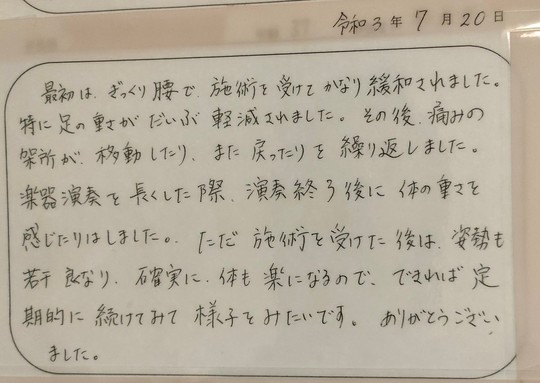 令和3年7月20日
最初は、ぎっくり腰で、施術を受けてかなり緩和されました。
特に足の重さがだいぶ軽減されました。その後、痛みの
架所が、移動したり、また戻ったりを繰り返しました。
楽器演奏を長くした際、演奏終了後に体の重さを
感じたりはしました。ただ施術を受けた後は、姿勢も
若干良なり、確実に、体も楽になるので、できれば定
期的に続けてみて様子をみたいです。ありがとうござい
ました。